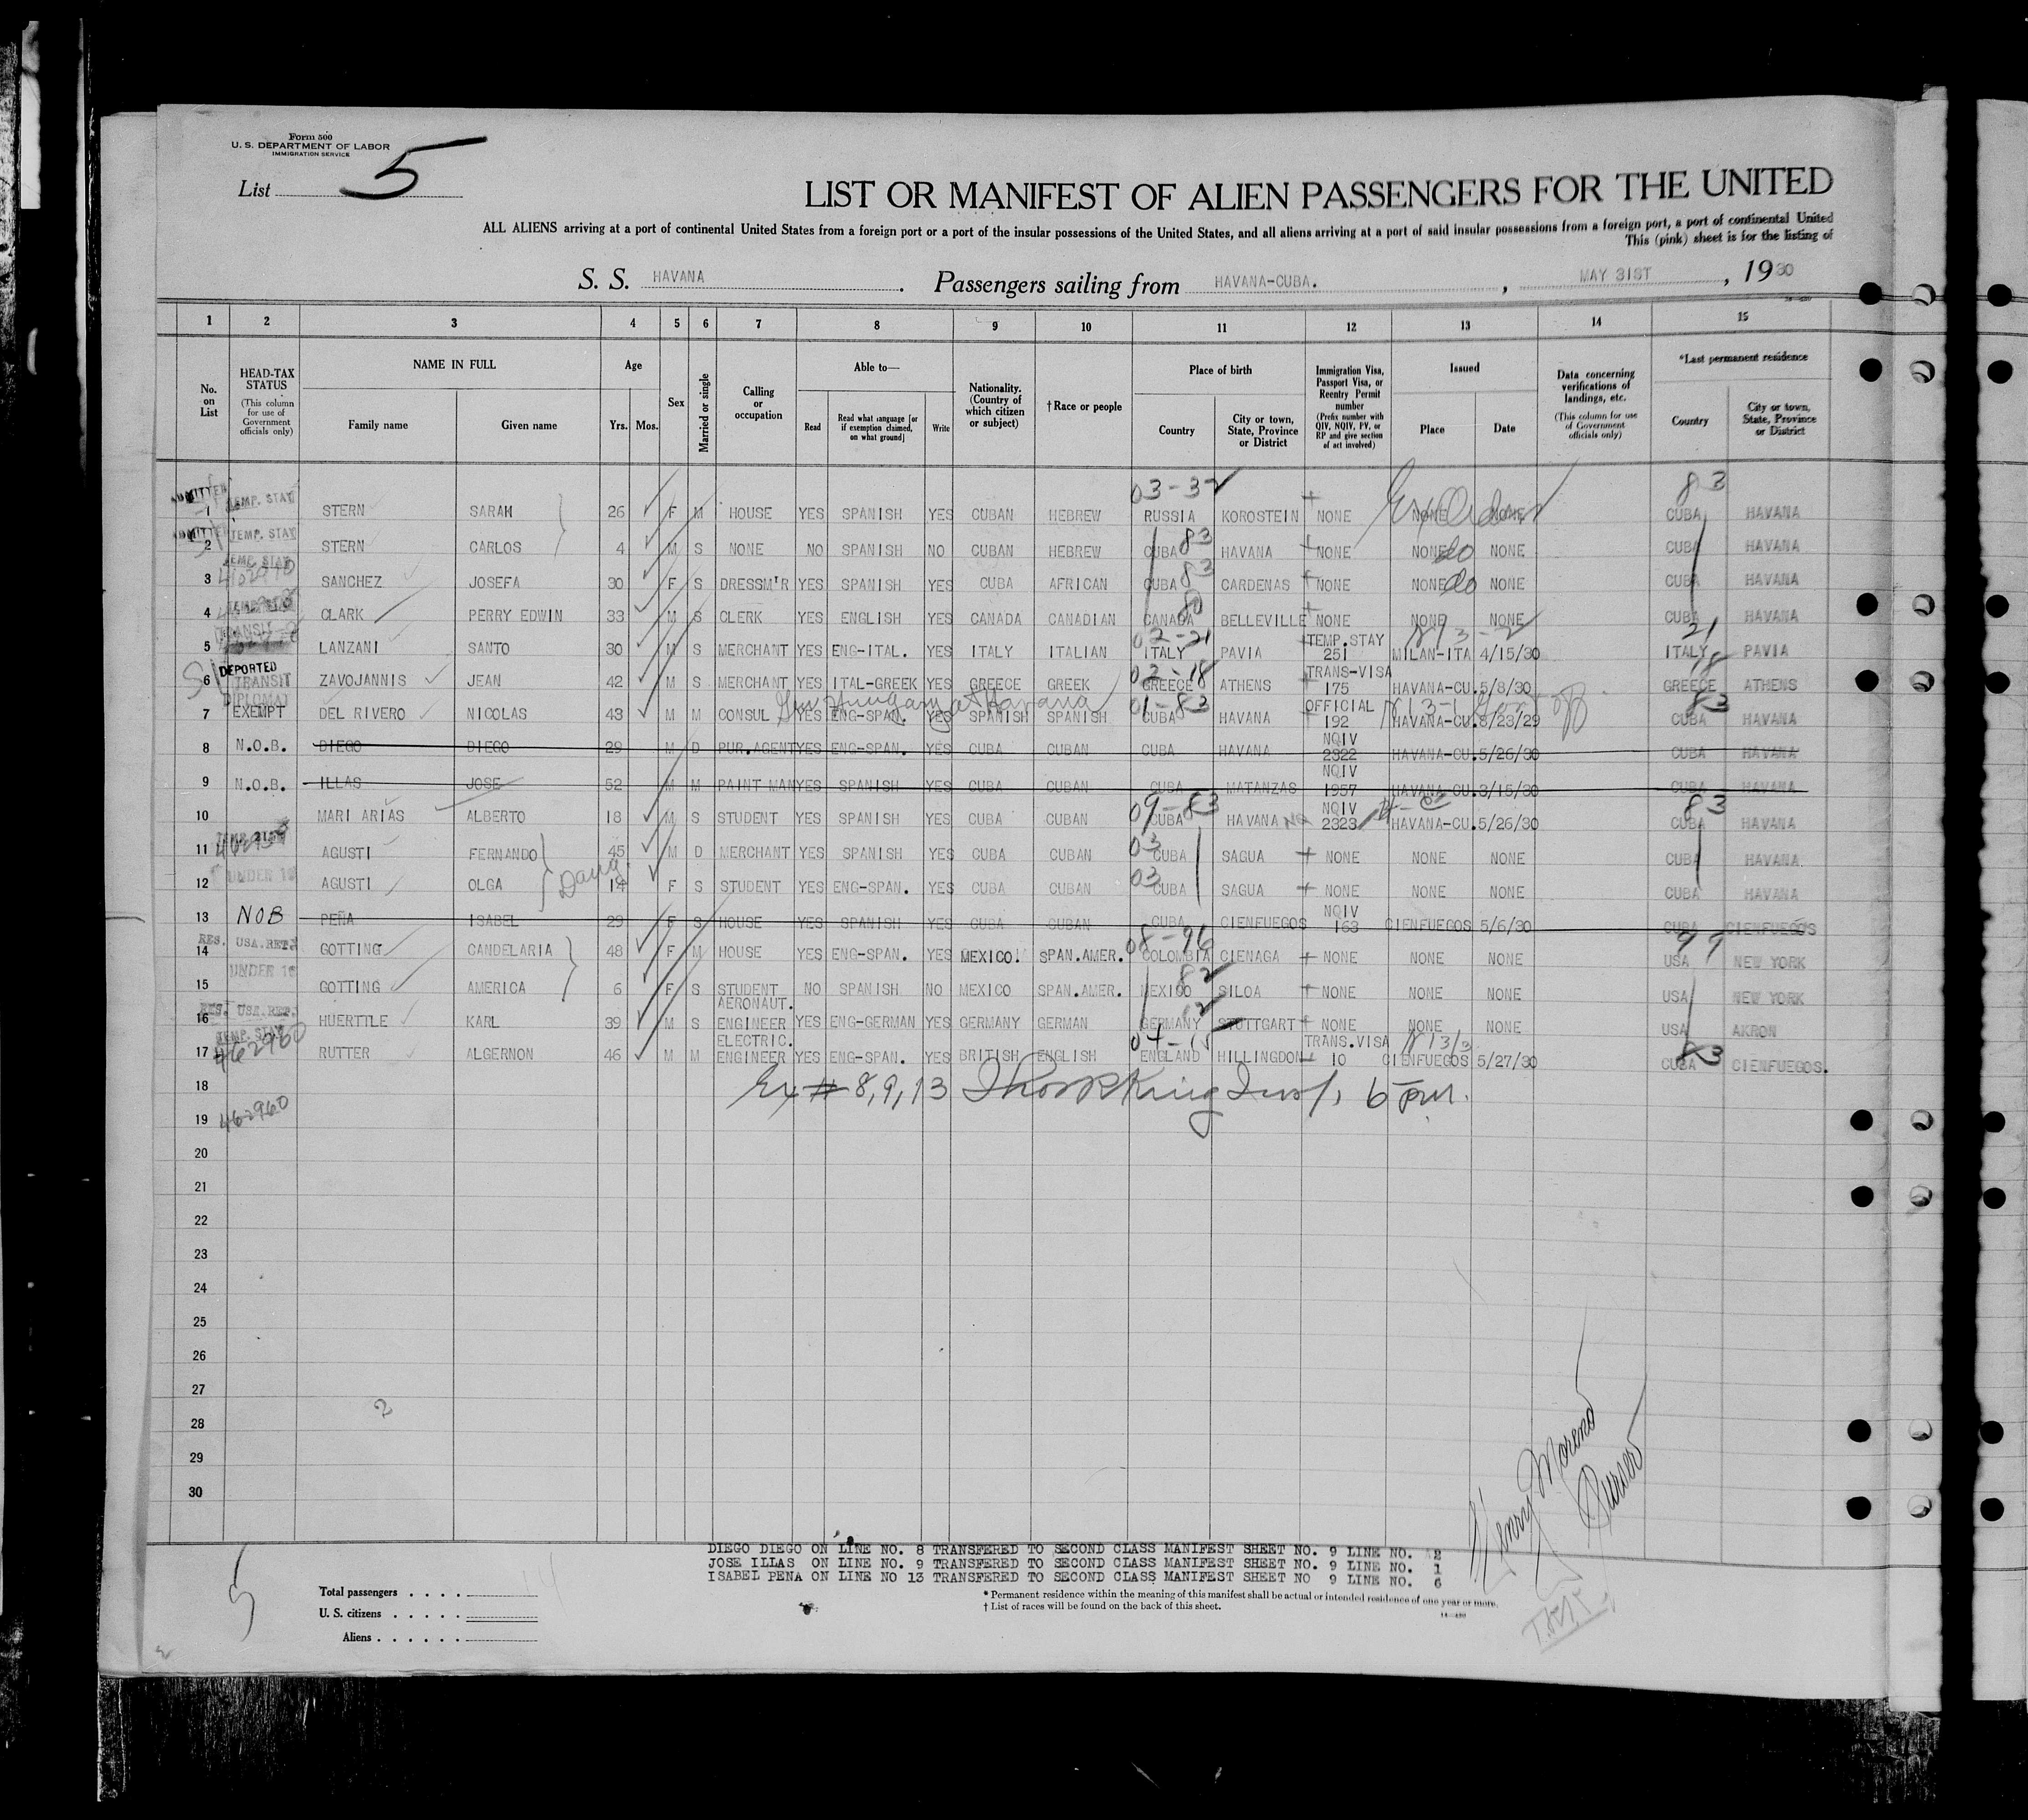 Form 500
U. S. DEPARTMENT OF LABOR
IMMIGRATION SERVICE
List 5
LIST OR MANIFEST OF ALIEN PASSENGERS FOR THE UNITED
ALL ALIENS arriving at a port of continental United States from a foreign port or a port of the insular possessions of the United States, and all aliens arriving at a port of said insular possessions from a foreign port, a port of continental United
This (pink) sheet is for the listing of
S. S. HAVANA. Passengers sailing from HAVANA-CUBA., MAY 31ST, 1930
1 2 3 4 5 6 7 8 9 10 11 12 13 14 15
No. on List
HEAD-TAX STATUS (This column for use of Government officials only)
NAME IN FULL Family name Given name
Age Yrs. Mos.
Sex
Married or single
Calling or occupation
Able to— Read Read what language [or if exemption claimed, on what ground] Write
Nationality. (Country of which citizen or subject)
†Race or people
Place of birth Country City or town, State, Province or District
Immigration Visa, Passport Visa, or Reentry Permit number (Prefix number with QIV, NQIV, PV, or RP and give section of act involved)
Issued Place Date
Data concerning verifications of landings, etc. (This column for use of Government officials only)
*Last permanent residence Country City or town, State, Province or District
03-32 83
ADMITTED 1 TEMP. STAY STERN SARAH 26 F M HOUSE YES SPANISH YES CUBAN HEBREW RUSSIA KOROSTEIN NONE NONE NONE CUBA HAVANA
ADMITTED 2 TEMP. STAY STERN CARLOS 4 M S NONE NO SPANISH NO CUBAN HEBREW CUBA 83 HAVANA NONE NONE do NONE CUBA HAVANA
3 TEMP. STAY SANCHEZ JOSEFA 30 F S DRESSM'R YES SPANISH YES CUBA AFRICAN CUBA 83 CARDENAS NONE NONE do NONE CUBA HAVANA
4 CLARK PERRY EDWIN 33 M S CLERK YES ENGLISH YES CANADA CANADIAN CANADA 80 BELLEVILLE NONE NONE NONE CUBA HAVANA
5 TRANSIT LANZANI SANTO 30 M S MERCHANT YES ENG-ITAL. YES ITALY ITALIAN 02-21 ITALY PAVIA TEMP.STAY 251 MILAN-ITA 4/15/30 ITALY 21 PAVIA
6 DEPORTED TRANSIT ZAVOJANNIS JEAN 42 M S MERCHANT YES ITAL-GREEK YES GREECE GREEK 02-18 GREECE ATHENS TRANS-VISA 175 HAVANA-CU. 5/8/30 GREECE 18 ATHENS
7 DIPLOMAT EXEMPT DEL RIVERO NICOLAS 43 M M CONSUL YES ENG-SPAN. YES SPANISH SPANISH 01-83 CUBA HAVANA OFFICIAL 192 HAVANA-CU. 8/23/29 CUBA 83 HAVANA
8 N.O.B. DIEGO DIEGO 29 M D PUR.AGENT YES ENG-SPAN. YES CUBA CUBAN CUBA HAVANA NQIV 2322 HAVANA-CU. 5/26/30 CUBA HAVANA
9 N.O.B. ILLAS JOSE 52 M M PAINT MAN YES SPANISH YES CUBA CUBAN CUBA MATANZAS NQIV 1957 HAVANA-CU. 3/15/30 CUBA HAVANA
10 MARI ARIAS ALBERTO 18 M S STUDENT YES SPANISH YES CUBA CUBAN 09-83 CUBA HAVANA NQIV 2323 HAVANA-CU. 5/26/30 CUBA 83 HAVANA
11 AGUSTI FERNANDO 45 M D MERCHANT YES SPANISH YES CUBA CUBAN 03 CUBA SAGUA NONE NONE NONE CUBA HAVANA
12 UNDER 16 AGUSTI OLGA Daug 14 F S STUDENT YES ENG-SPAN. YES CUBA CUBAN 03 CUBA SAGUA NONE NONE NONE CUBA HAVANA
13 NOB PEÑA ISABEL 29 F S HOUSE YES SPANISH YES CUBA CUBAN CUBA CIENFUEGOS NQIV 163 CIENFUEGOS 5/6/30 CUBA CIENFUEGOS
14 RES. USA.RET. GOTTING CANDELARIA 48 F M HOUSE YES ENG-SPAN. YES MEXICO. SPAN.AMER. 08-96 COLOMBIA CIENAGA NONE NONE NONE USA 99 NEW YORK
15 UNDER 16 GOTTING AMERICA 6 F S STUDENT NO SPANISH NO MEXICO SPAN.AMER. MEXICO 82 SILOA NONE NONE NONE USA NEW YORK
16 RES. USA.RET. HUERTTLE KARL 39 M S AERONAUT. ENGINEER YES ENG-GERMAN YES GERMANY GERMAN GERMANY 12 STUTTGART NONE NONE NONE USA AKRON
17 TEMP. STAY 462960 RUTTER ALGERNON 46 M M ELECTRIC. ENGINEER YES ENG-SPAN. YES BRITISH ENGLISH 04-15 ENGLAND HILLINGDON TRANS.VISA 10 CIENFUEGOS 5/27/30 CUBA 83 CIENFUEGOS.
18 Ex # 8, 9, 13 King Insp. 6 pm.
19 462960
20
21
22
23
24
25
26
27
2
28
29
30
Henry Moreno
Purser
DIEGO DIEGO ON LINE NO. 8 TRANSFERED TO SECOND CLASS MANIFEST SHEET NO. 9 LINE NO. 2
JOSE ILLAS ON LINE NO. 9 TRANSFERED TO SECOND CLASS MANIFEST SHEET NO. 9 LINE NO. 1
ISABEL PENA ON LINE NO 13 TRANSFERED TO SECOND CLASS MANIFEST SHEET NO 9 LINE NO. 6
5
Total passengers . . . . 14
U. S. citizens . . . . .
Aliens . . . . . .
* Permanent residence within the meaning of this manifest shall be actual or intended residence of one year or more.
† List of races will be found on the back of this sheet.